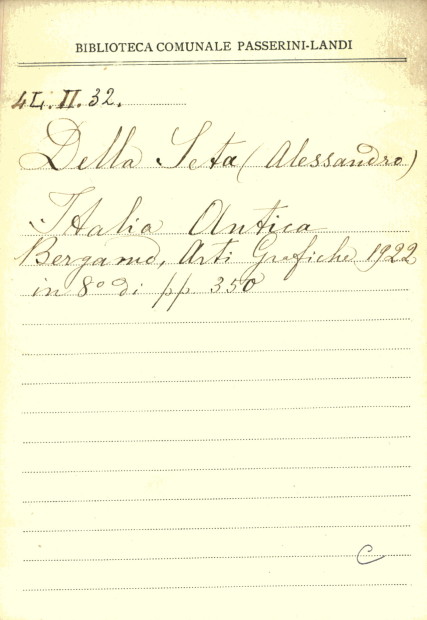 BIBLIOTECA COMUNALE PASSERINI-LANDI
4L. II. 32.
Della Seta (Alessandro)
Italia Antica
Bergamo, Arti Grafiche 1922
in 8° di pp. 350
C